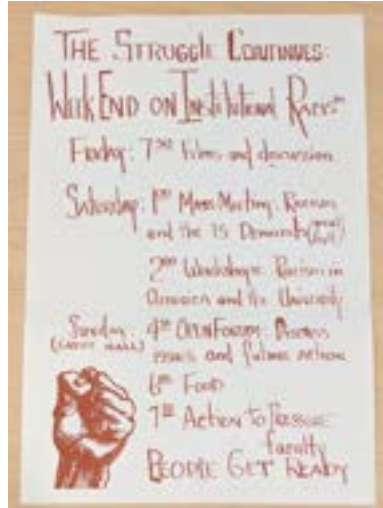 THE STRUGGLE CONTINUES:
WEEKEND ON Institutional Racism
Friday: 7³⁰ Films and discussion
Saturday: 1⁰⁰ Mass Meeting. Racism
and the 15 Demands (great hall)
2⁰⁰ Workshops: Racism in
America and the University
Sunday. 4⁰⁰ OPEN FORUM: Discuss
issues and future action
6⁰⁰ Food
7⁰⁰ ACTION TO PRESSURE
faculty
PEOPLE GET READY